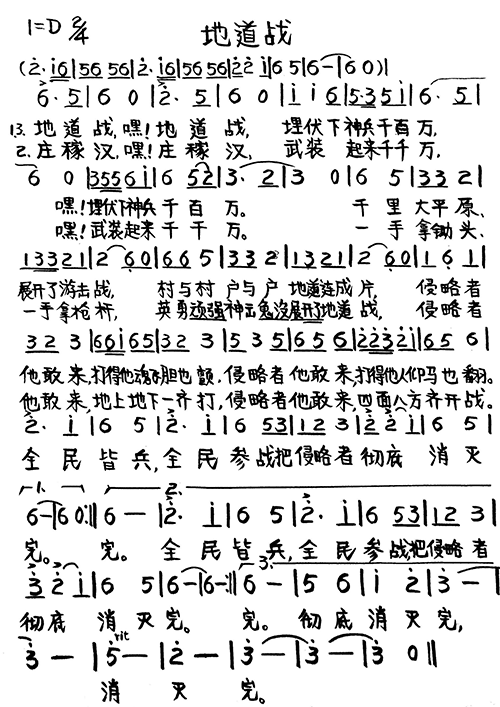 1=D 2/4 地道战
(2· i6|56 56|2· i6|56 56|2 2 i|6 5|6—|6 0)|
6· 5|6 0|2· 5|6 0|i i 6|5·35 i|6· 5|
13. 地道战,嘿!地道战, 埋伏下神兵千百万,
2. 庄稼汉,嘿!庄稼汉, 武装起来千千万,
6 0|3556i|6 52|3· 2|3 0|6 5|332|
嘿!埋伏下神兵千百万。 千里大平原、
嘿!武装起来千千万。 一手拿锄头、
13321|2 60|665|332|1321|2 60|1 61|
展开了游击战, 村与村户与户地道连成片, 侵略者
一手拿枪杆, 英勇顽强神出鬼没展开了地道战, 侵略者
323|66i65|32 3|535|656|22321|656|
他敢来,打得他魂飞胆也颤,侵略者他敢来,打得他人仰马也翻。
他敢来,地上地下一齐打,侵略者他敢来,四面八方齐开战。
2· i|6 5|2· i|6 53|12 3|2 2 i|6 5|
全民皆兵,全民参战把侵略者彻底消灭
1. 2.
6—|6 0:||6—|2· i|6 5|2· i|6 53|12 3|
完。 完。 全民皆兵,全民参战,把侵略者
3.
3 2 i|6 5|6—|6—:||6—|5 6|i 2|3—|
彻底消灭完。 完。 彻底消灭完,
rit
3—|5—|2—|3—|3—|3 0||
消灭完。